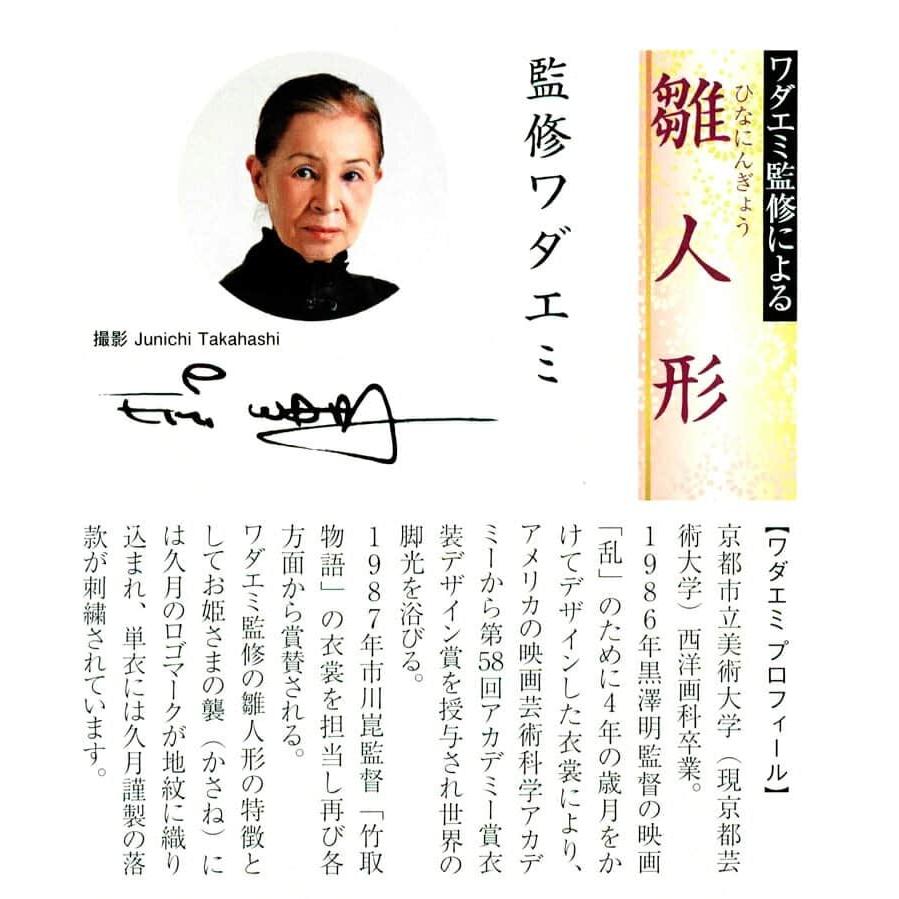 ワダエミ監修による
ひなにんぎょう
雛人形
監修ワダエミ
撮影 Junichi Takahashi
Emi Wada
【ワダエミ プロフィール】
京都市立美術大学(現京都芸
術大学)西洋画科卒業。
1986年黒澤明監督の映画
「乱」のために4年の歳月をか
けてデザインした衣裳により、
アメリカの映画芸術科学アカデ
ミーから第58回アカデミー賞衣
装デザイン賞を授与され世界の
脚光を浴びる。
1987年市川崑監督「竹取
物語」の衣裳を担当し再び各
方面から賞賛される。
ワダエミ監修の雛人形の特徴と
してお姫さまの襲(かさね)に
は久月のロゴマークが地紋に織り
込まれ、単衣には久月謹製の落
款が刺繍されています。